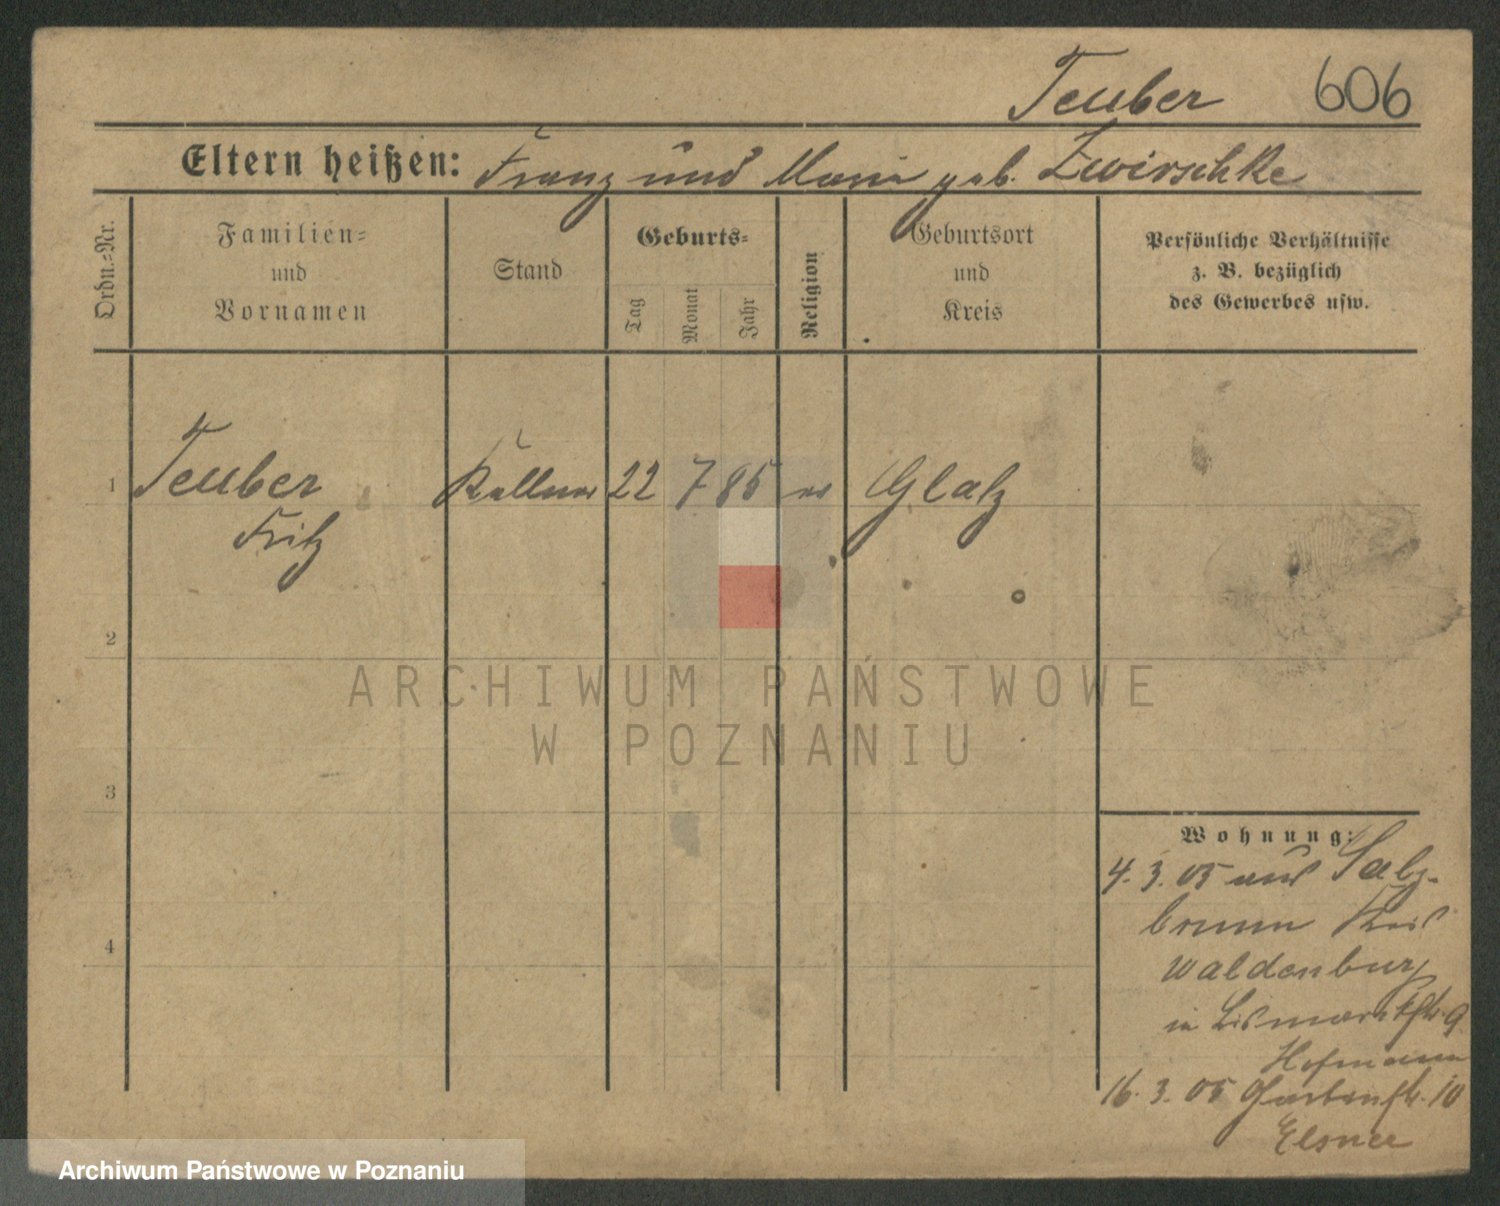 Teuber 606
Eltern heißen: Franz und Maria geb. Zwirschke
Ordn.-Nr.
Familien-
und
Vornamen
Stand
Geburts-
Tag
Monat
Jahr
Religion
Geburtsort
und
Kreis
Persönliche Verhältnisse
z. B. bezüglich
des Gewerbes usw.
1 Teuber Kellner 22 7 85 Glatz
Fritz
2
3
4
ARCHIWUM PAŃSTWOWE
W POZNANIU
Wohnung:
4. 3. 05 aus Salz-
brunn Kreis
Waldenburg
in Bismarckstr. 9
Hofmann
16. 3. 05 Gartenstr. 10
Elsner
Archiwum Państwowe w Poznaniu